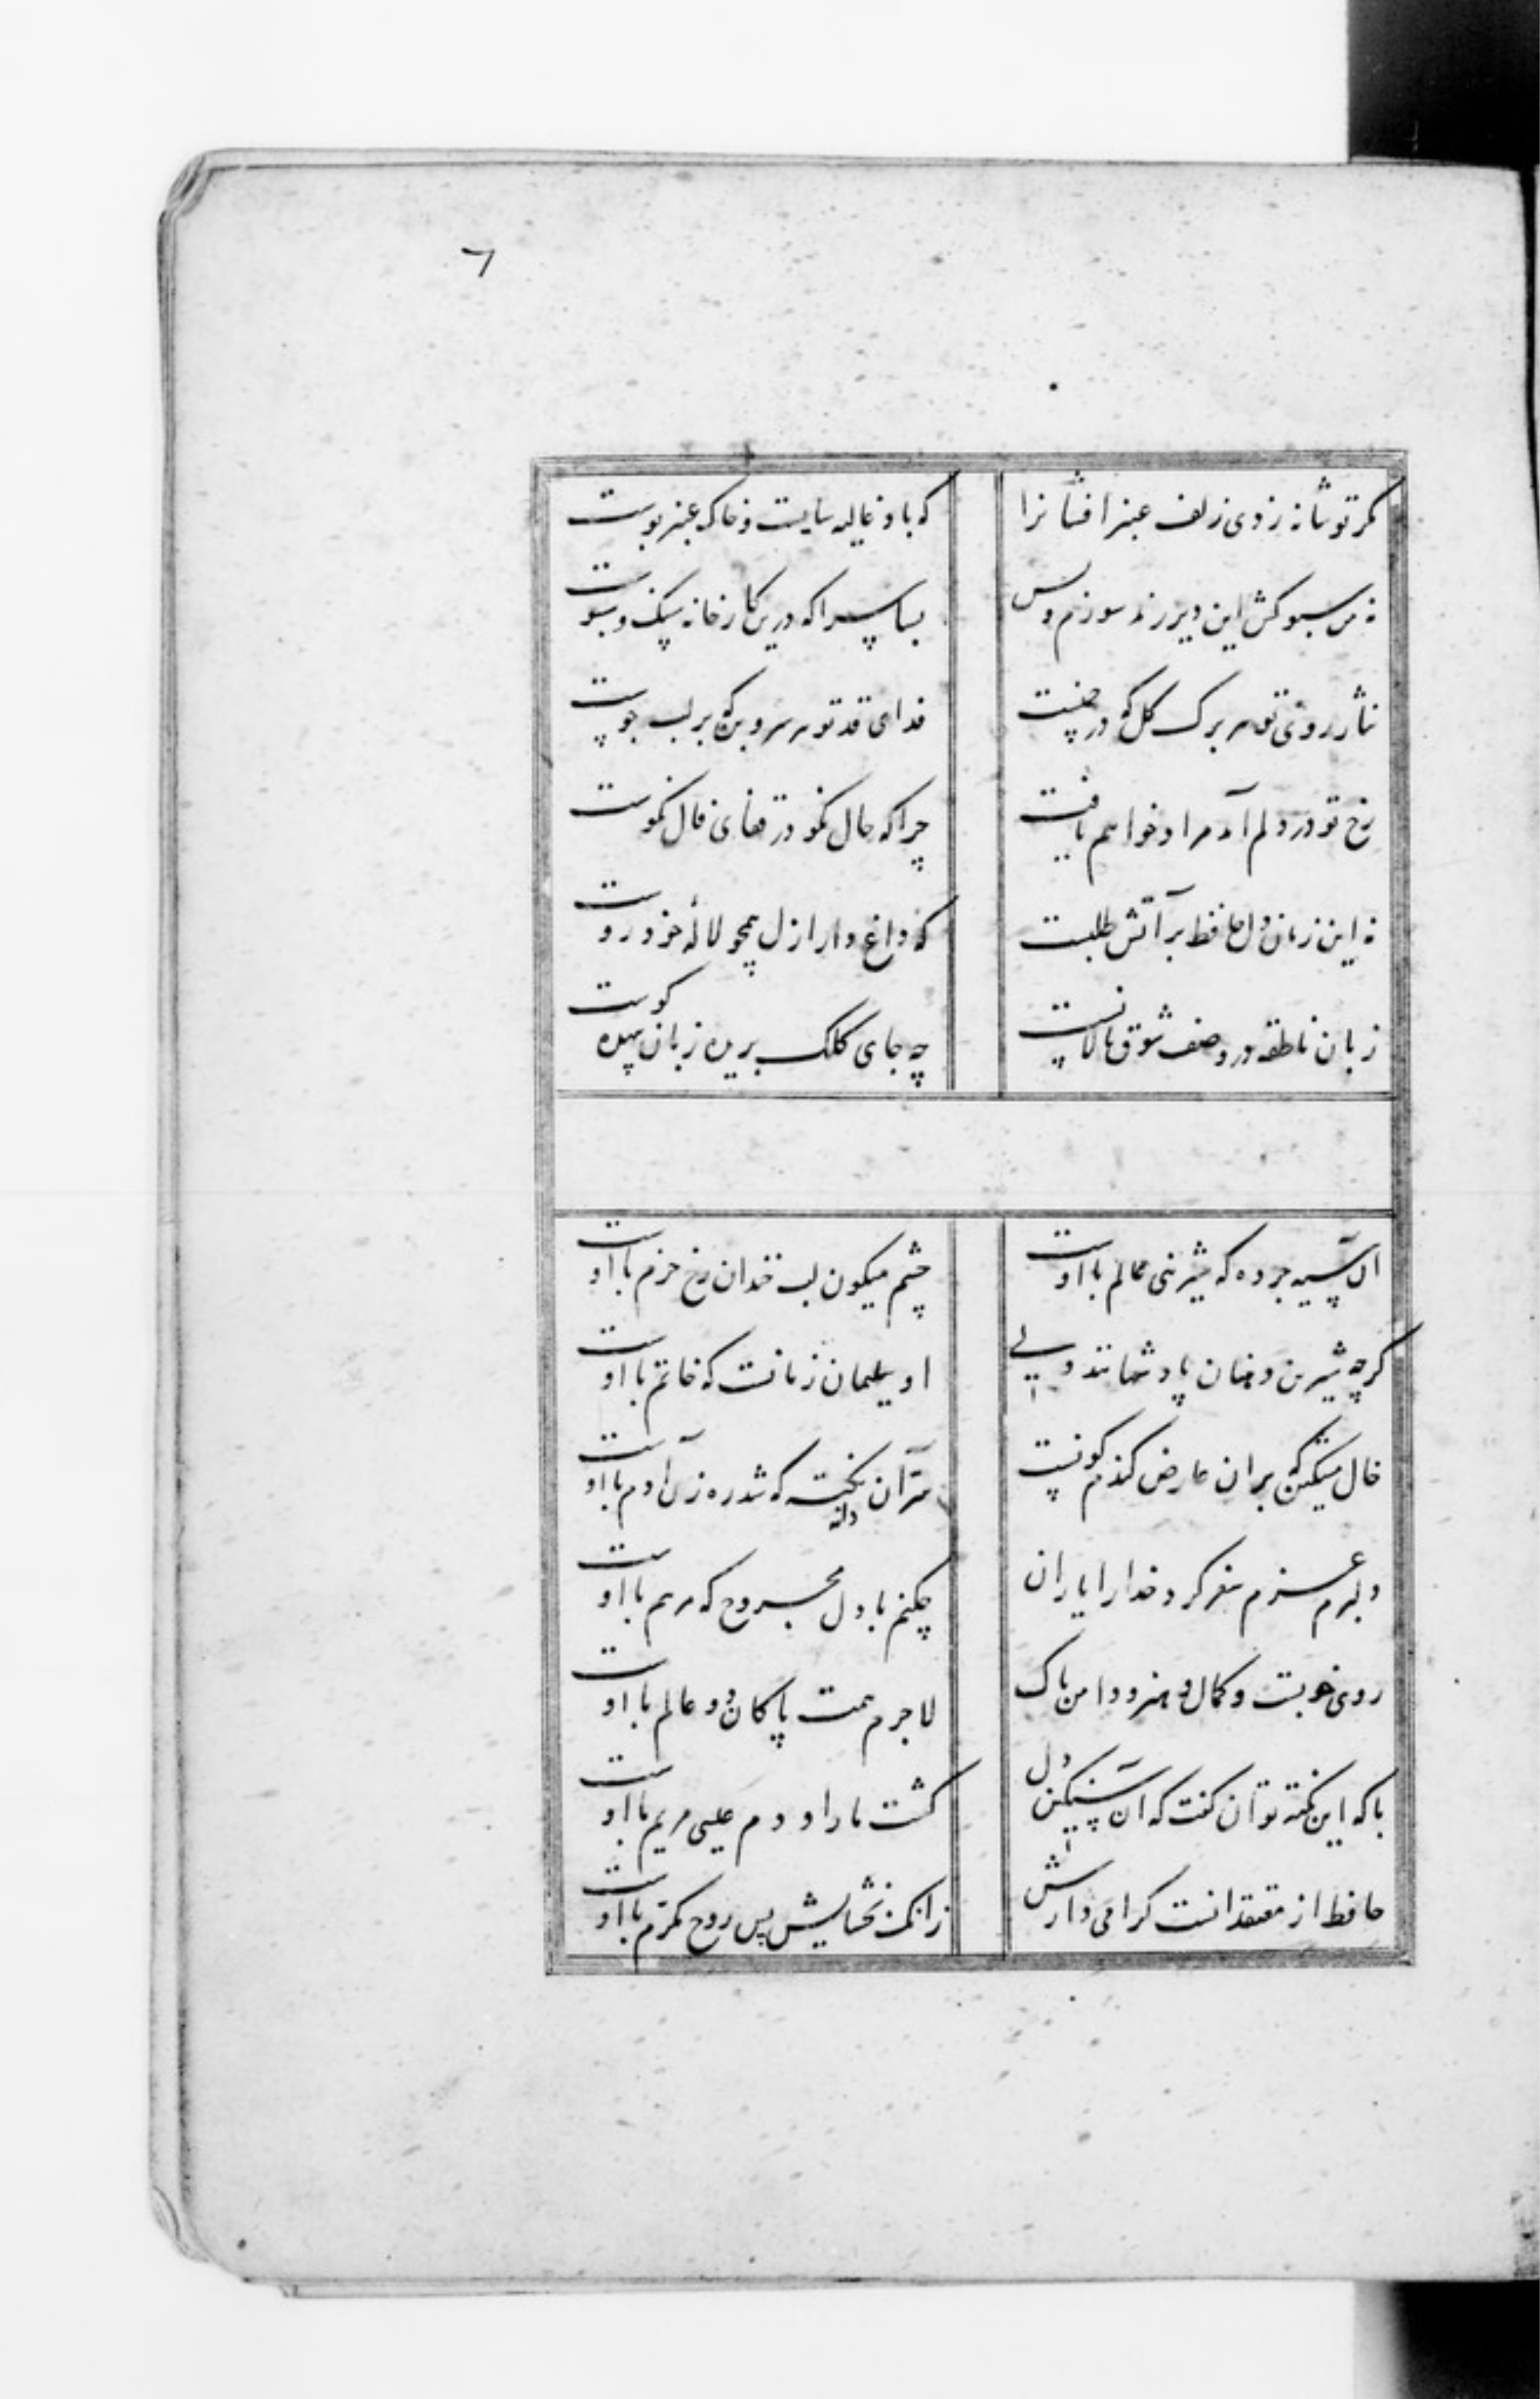 ٦
مگر تو شانه زدی زلف عنبرافشانرا
که باد غالیه سایست و خاک عنبر بوست
نه من سبوکش این دیر رند سوزم و بس
بسا سرا که درین کارخانه سنگ و سبوست
نثار روی تو هر برگ گل که در چمنست
فدای قد تو هر سروبن که بر لب جوست
رخ تو در دلم آمد مراد خواهم یافت
چرا که حال نکو در قفای فال نکوست
نه این زمان دل حافظ بر آتش طلبست
که داغدار ازل همچو لاله خودروست
زبان ناطقه در وصف شوق ما لالست
چه جای کلک بریده زبان بیهده گوست
آن سیه چرده که شیرینی عالم با اوست
چشم میگون لب خندان رخ خرم با اوست
گرچه شیرین دهنان پادشهانند ولی
او سلیمان زمانست که خاتم با اوست
خال مشکین که بر آن عارض گندم گونست
سر آن دانه که شد رهزن آدم با اوست
دلبرم عزم سفر کرد خدا را یاران
چکنم با دل مجروح که مرهم با اوست
روی خوبست و کمال و هنر و دامن پاک
لاجرم همت پاکان دو عالم با اوست
با که این نکته توان گفت که آن سنگین دل
کشت ما را و دم عیسی مریم با اوست
حافظ از معتقدانست گرامی دارش
زانکه بخشایش بس روح مکرم با اوست